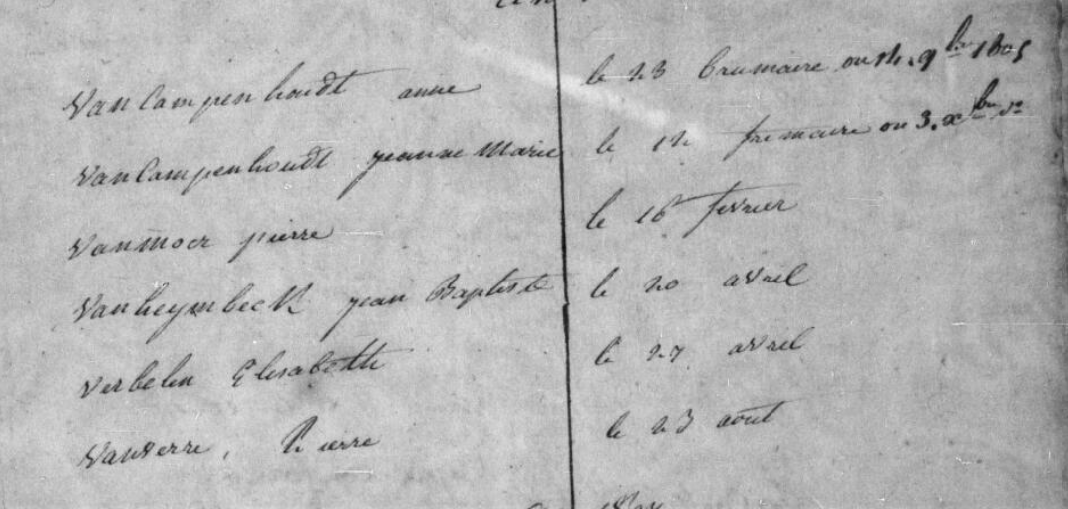 Van Campenhoudt anne le 23 brumaire ou 14. 9bre 1805
Van Campenhoudt jeanne Marie le 12 frimaire ou 3. xbre do
Vanmoer pierre le 16 fevrier
Vanheymbeck jean Baptiste le 20 avril
Verbelen Elisabetth le 27 avril
Vanderre, Pierre le 23 aout